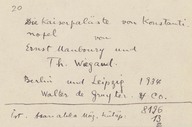 20
Die Kaiserpaläste von Konstanti
nopel
von
Ernst Mamboury und
Th. Wiegand.
Berlin und Leipzig 1934
Walter de Gruyter & Co.
8126
13